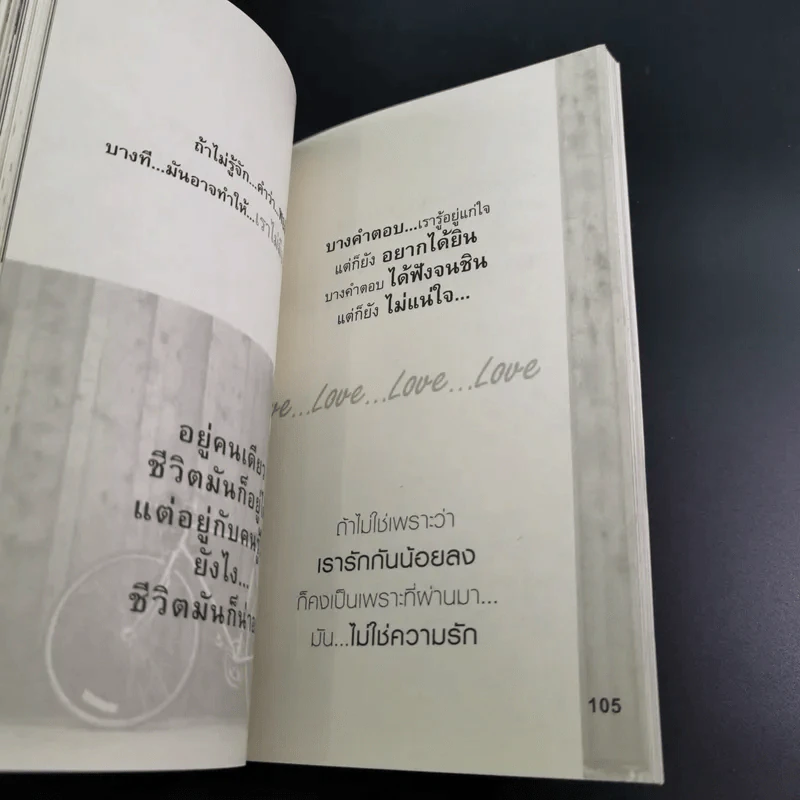 ถ้าไม่รู้จัก...คำว่า...
บางที...มันอาจทำให้...เราไม่
อยู่คนเดียว
ชีวิตมันก็อยู่
แต่อยู่กับคน
ยังไง...
ชีวิตมันก็น่า
บางคำตอบ...เรารู้อยู่แก่ใจ
แต่ก็ยัง อยากได้ยิน
บางคำตอบ ได้ฟังจนชิน
แต่ก็ยัง ไม่แน่ใจ...
...Love...Love...Love
ถ้าไม่ใช่เพราะว่า
เรารักกันน้อยลง
ก็คงเป็นเพราะที่ผ่านมา...
มัน...ไม่ใช่ความรัก
105